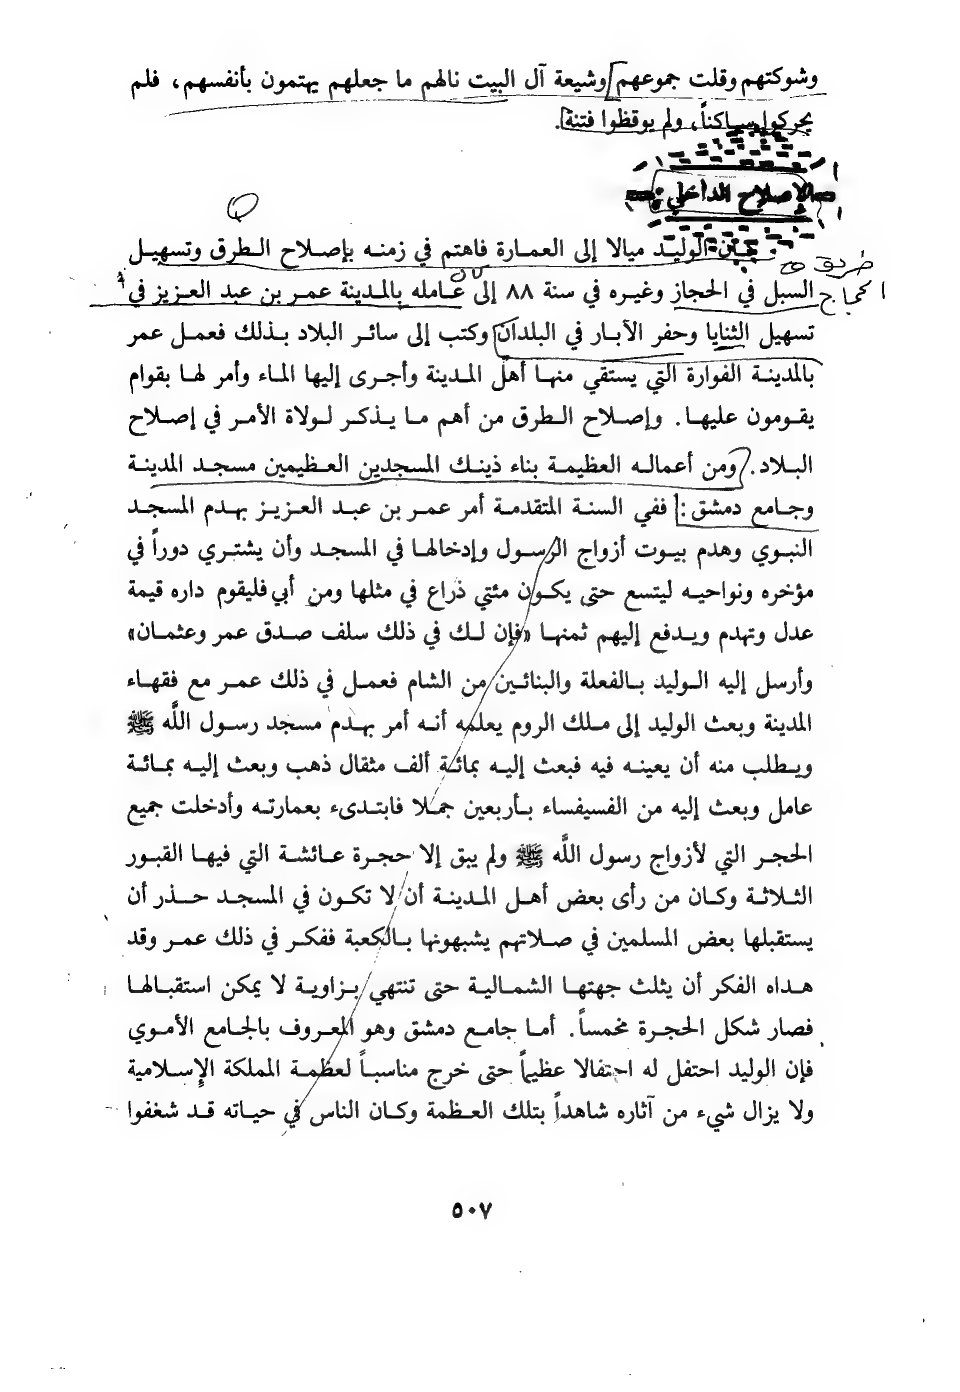 وشوكتهم وقلت جموعهم وشيعة آل البيت نالهم ما جعلهم يهتمون بأنفسهم، فلم
يحركوا ساكناً، ولم يوقظوا فتنة.
الإصلاح الداخلي:
كان الوليد ميالا إلى العمارة فاهتم في زمنه بإصلاح الطرق وتسهيل
السبل في الحجاز وغيره في سنة ٨٨ إلى عامله بالمدينة عمر بن عبد العزيز في
تسهيل الثنايا وحفر الآبار في البلدان وكتب إلى سائر البلاد بذلك فعمل عمر
بالمدينة الفوارة التي يستقي منها أهل المدينة وأجرى إليها الماء وأمر لها بقوام
يقومون عليها. وإصلاح الطرق من أهم ما يذكر لولاة الأمر في إصلاح
البلاد. ومن أعماله العظيمة بناء ذينك المسجدين العظيمين مسجد المدينة
وجامع دمشق: ففي السنة المتقدمة أمر عمر بن عبد العزيز بهدم المسجد
النبوي وهدم بيوت أزواج الرسول وإدخالها في المسجد وأن يشتري دوراً في
مؤخره ونواحيه ليتسع حتى يكون مئتي ذراع في مثلها ومن أبي فليقوم داره قيمة
عدل وتهدم ويدفع إليهم ثمنها «فإن لك في ذلك سلف صدق عمر وعثمان»
وأرسل إليه الوليد بالفعلة والبنائين من الشام فعمل في ذلك عمر مع فقهاء
المدينة وبعث الوليد إلى ملك الروم يعلمه أنه أمر بهدم مسجد رسول اللَّه ﷺ
ويطلب منه أن يعينه فيه فبعث إليه بمائة ألف مثقال ذهب وبعث إليه بمائة
عامل وبعث إليه من الفسيفساء بأربعين جملا فابتدىء بعمارته وأدخلت جميع
الحجر التي لأزواج رسول اللَّه ﷺ ولم يبق إلا حجرة عائشة التي فيها القبور
الثلاثة وكان من رأى بعض أهل المدينة أن لا تكون في المسجد حذر أن
يستقبلها بعض المسلمين في صلاتهم يشبهونها بالكعبة ففكر في ذلك عمر وقد
هداه الفكر أن يثلث جهتها الشمالية حتى تنتهي بزاوية لا يمكن استقبالها
فصار شكل الحجرة مخمساً. أما جامع دمشق وهو المعروف بالجامع الأموي
فإن الوليد احتفل له احتفالا عظيماً حتى خرج مناسباً لعظمة المملكة الإسلامية
ولا يزال شيء من آثاره شاهداً بتلك العظمة وكان الناس في حياته قد شغفوا
٥٠٧